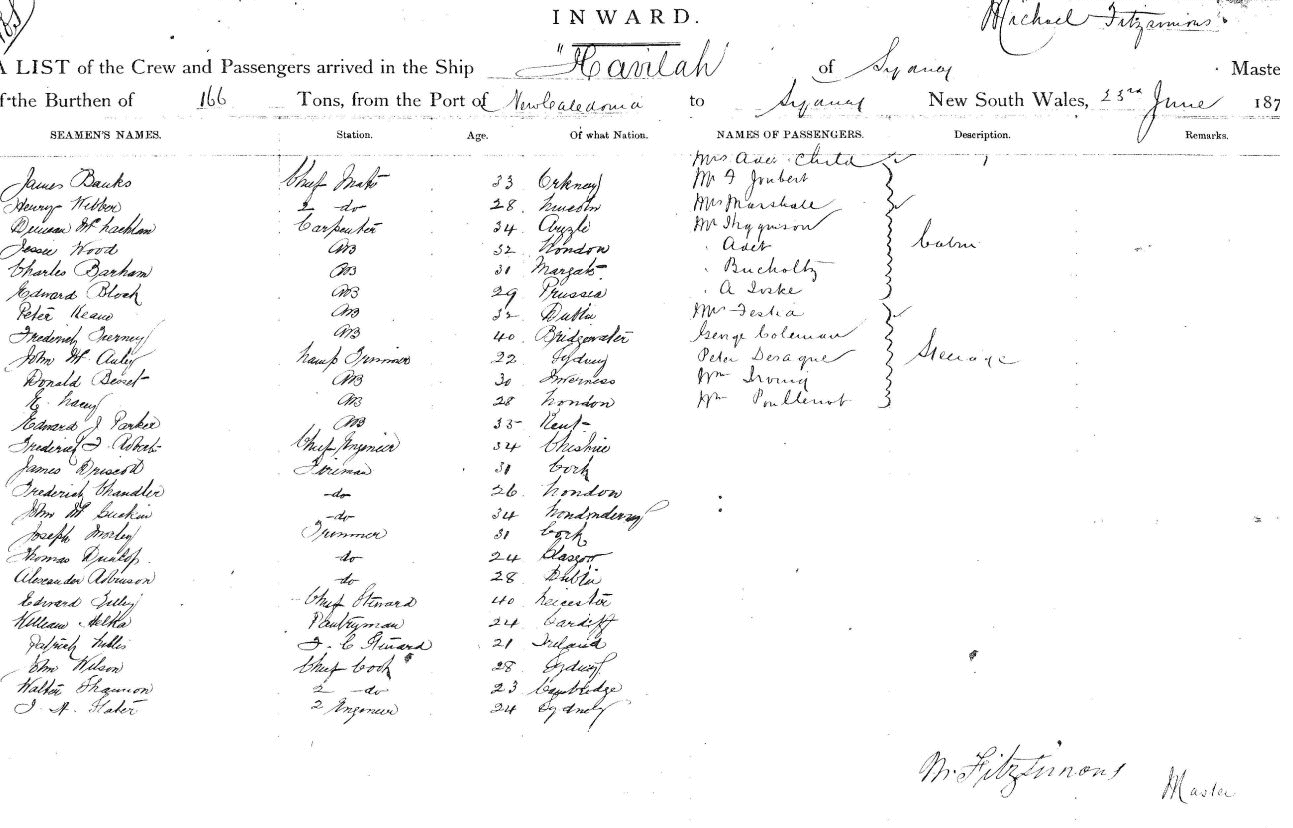 INWARD.
Michael Fitzsimons
A LIST of the Crew and Passengers arrived in the Ship "Havilah of Sydney Maste
f the Burthen of 166 Tons, from the Port of New Caledonia to Sydney New South Wales, 23rd June 187
SEAMEN'S NAMES. Station. Age. Of what Nation. NAMES OF PASSENGERS. Description. Remarks.
Mrs Adet Child 1
James Banks Chief Mate 33 Orkney Mr F Joubert
Henry Webber 2 do 28 Lincoln Mrs Marshall
Duncan McLachlan Carpenter 34 Argyle Mr Higginson
Jessie Wood AB 32 London " Adet Cabin
Charles Barham AB 31 Margate " Bucholtz
Edward Block AB 29 Prussia " A Joske
Peter Keane AB 32 Dublin Mr Testia
Frederick Tierney AB 40 Bridgewater George Coleman
John McAuley Lamp Trimmer 22 Sydney Peter Deraque Steerage
Donald AB 30 Inverness Wm Irving
E. Lacey AB 28 London Wm Poultenot
Edward J Parker AB 35 Kent
Frederick J Chief Engineer 34 Cheshire
James Driscoll Fireman 31 Cork
Frederick Chandler do 26 London
John McGuckin do 34 Londonderry
Joseph Morley Trimmer 31 Cork
Thomas Dunlop. do 24 Glasgow
Alexander Robinson do 28 Dublin
Edward Chief Steward 40 Leicester
William Pantryman 24 Cardiff
Patrick F. C. Steward 21 Ireland
John Wilson Chief Cook 28 Sydney
Walter Shannon 2 do 23 Cambridge
J. A. Slater 2 Engineer 24 Sydney
M. Fitzsimons Master